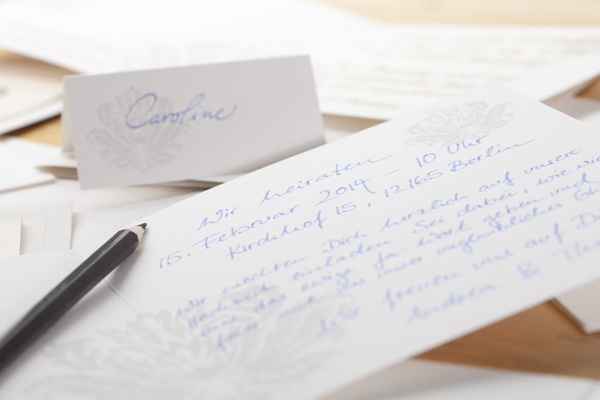 Caroline
Wir heiraten
15. Februar 2014 - 10 Uhr
Kirchhof 15, 12165 Berlin
Wir möchten Dich herzlich auf unsere
Hochzeit einladen. Sei dabei, wie wir
uns das ewige Ja-Wort geben und
feier mit uns unser unglaubliches
Wir freuen uns auf
Andrea &